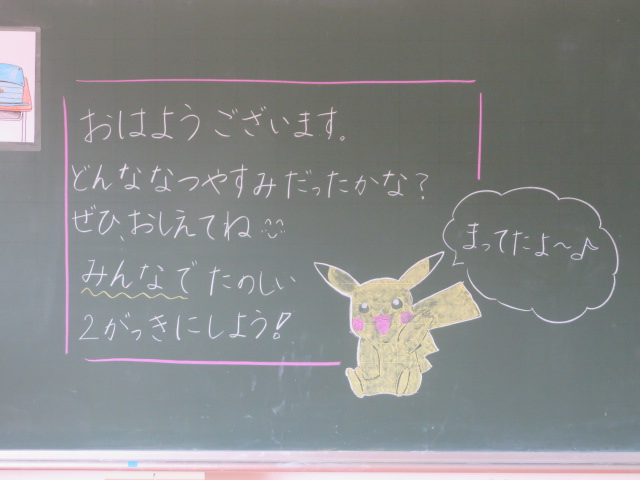 おはようございます。
どんななつやすみだったかな?
ぜひ、おしえてね
みんなでたのしい
2がっきにしよう!
まってたよ～♪